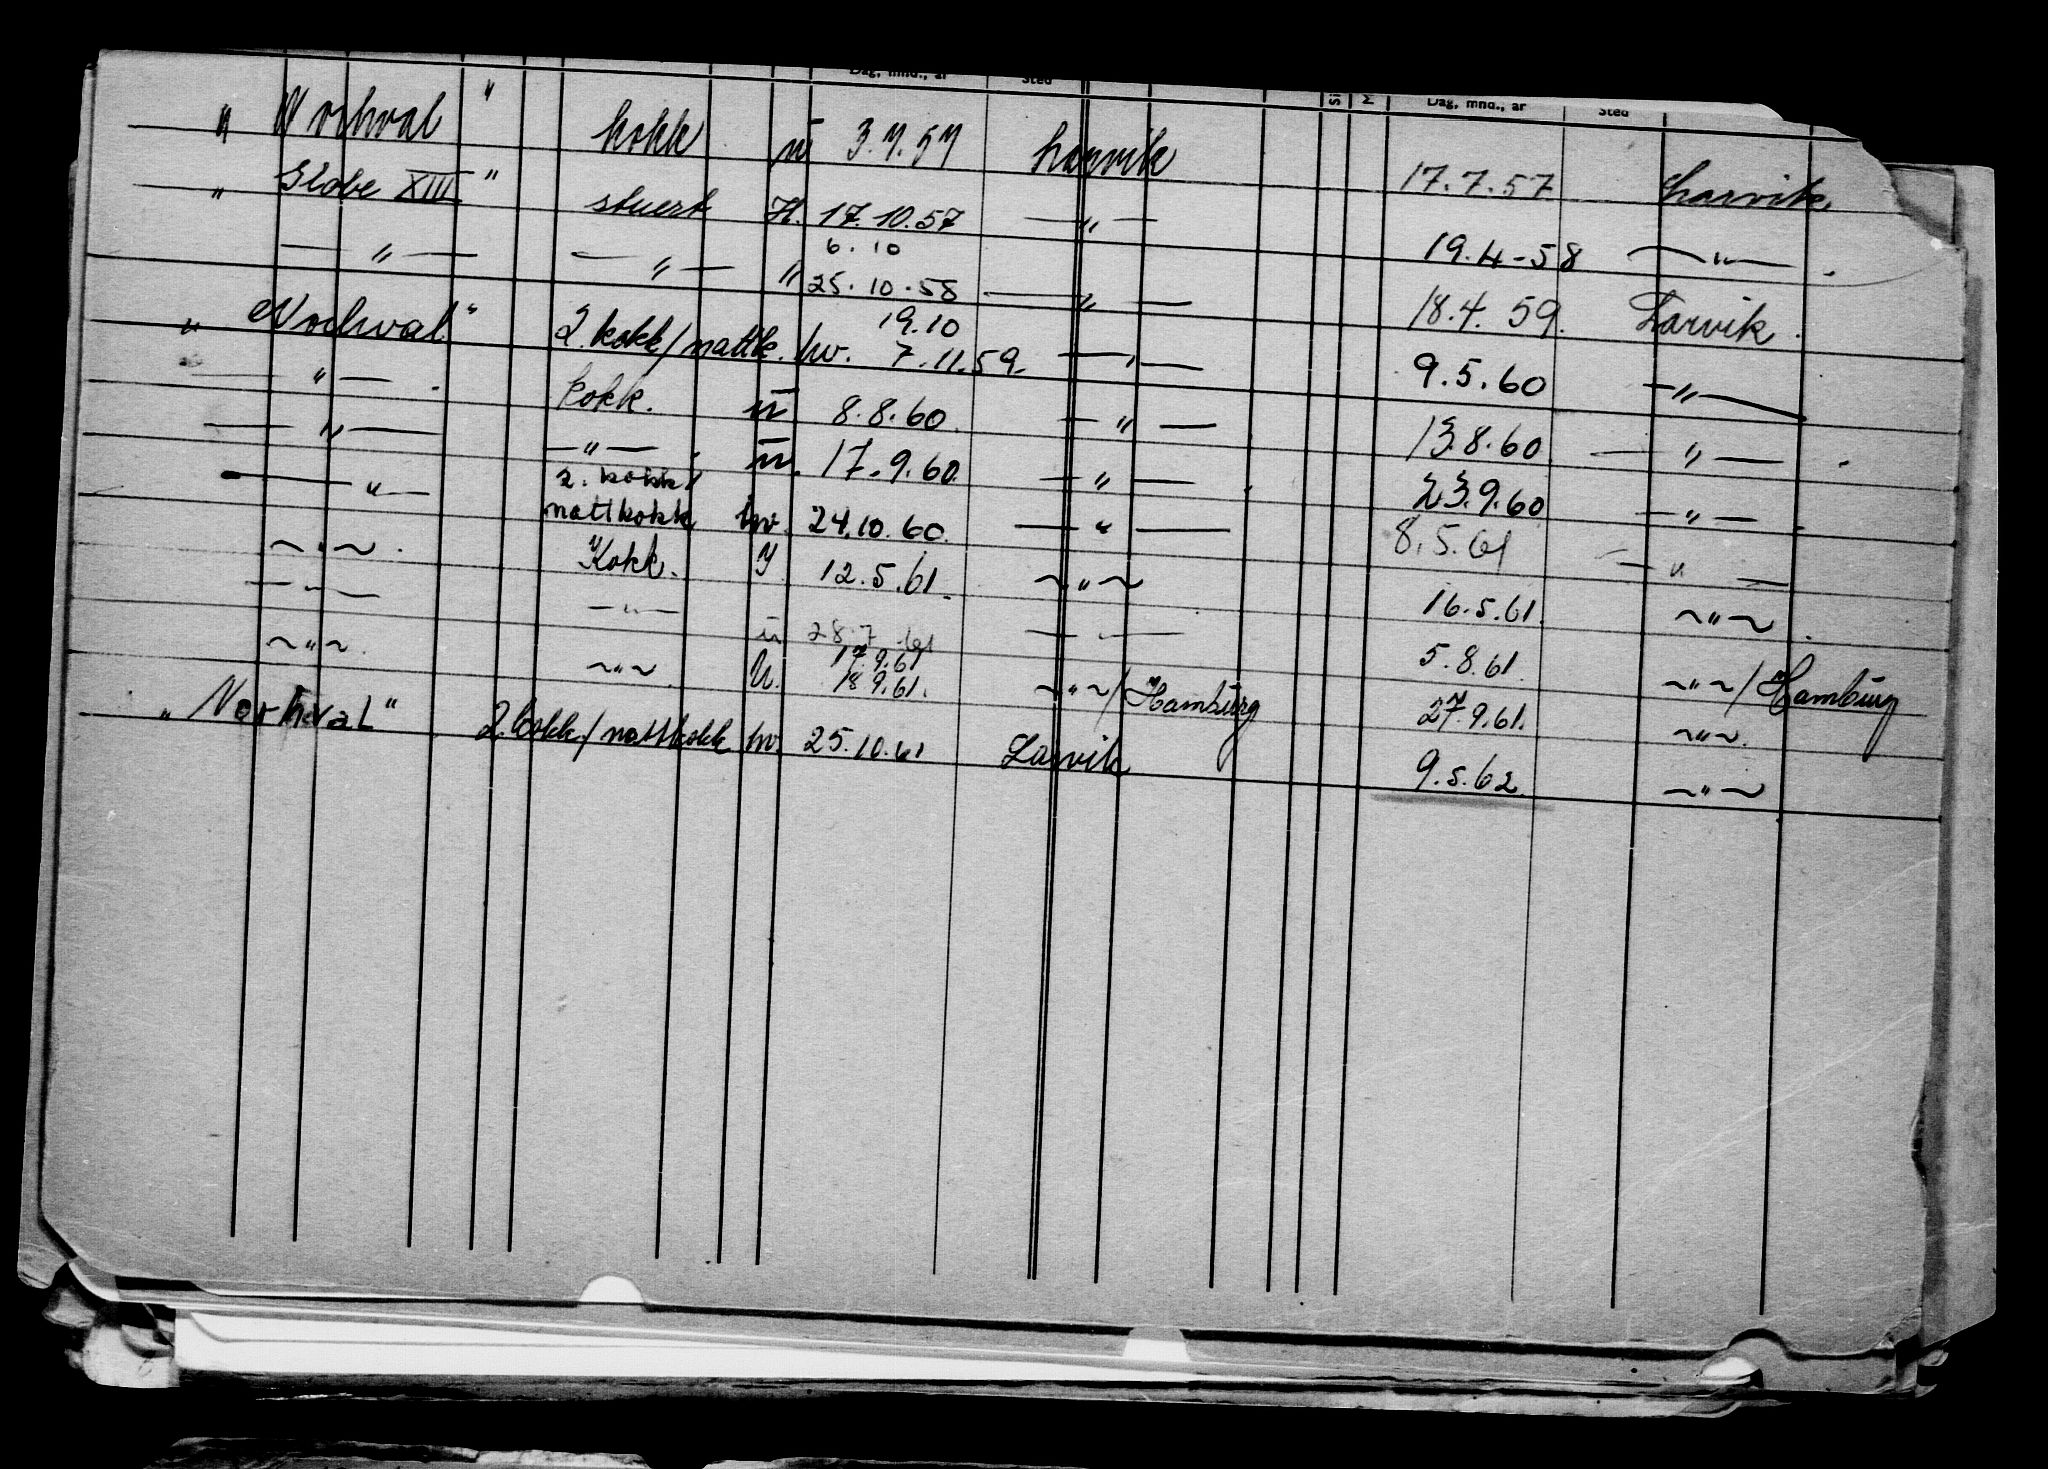 Dag, mnd., år Sted Dag, mnd., år Sted
" Norhval " kokk u 3.7.57 Larvik 17.7.57 Larvik.
" Globe XIII " stuert H. 17.10.57 — " — 19.4-58 — " — .
— " — — " — " 6.10 25.10.58 — " — 18.4.59. Larvik.
" Norhval " 2. kokk/nattk. hv. 19.10 7.11.59. — " — 9.5.60 — " —
— " — . kokk. u 8.8.60. — " — 13.8.60 — " — .
— " — — " — . u. 17.9.60. — " — . 23.9.60 — " — .
— " — 2. kokk/ nattkokk hv. 24.10.60. — " — 8.5.61 — " —
~ " ~ . Kokk. 12.5.61. ~ " ~ 16.5.61. ~ " ~ .
— " — — " — u 28.7.61 — " — 5.8.61. ~ " ~ / Hamburg
~ " ~ . ~ " ~ . U. 17.9.61 18.9.61. ~ " ~ / Hamburg 27.9.61. ~ " ~ .
" Norhval " 2. kokk./nattkokk hv. 25.10.61 Larvik 9.5.62. ~ " ~